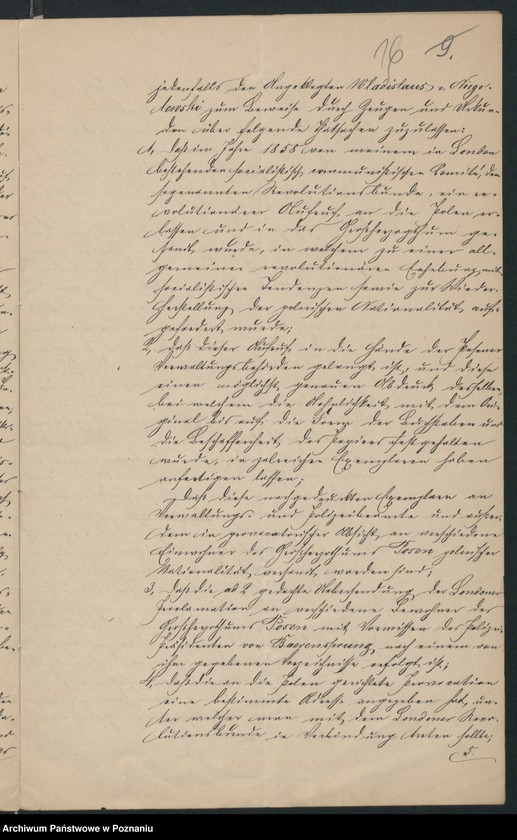 16 9.
jedenfalls den Angeklagten Wladislaus v. Niego-
lewski zum Beweise durch Zeugen und Urkun-
den über folgende Thatsachen zuzulassen:
1, Daß im Jahre 1858 von meinem in London
bestehenden socialistisch communistischen Komité, dem
sogenannten Revolutionsbunde, ein re-
volutionärer Aufruf an die Polen er-
lassen und in das Großherzogthum ge-
sandt wurde, in welchem zu einer all-
gemeinen revolutionären Erhebung mit
socialistischen Tendenzen sowie zur Wieder-
herstellung der polnischen Nationalität auf-
gefordert wurde;
2, daß dieser Aufruf in die Hände der Posener
Verwaltungsbehörden gelangt ist, und diese
einen möglichst genauen Abdruck desselben,
bei welchem die Aehnlichkeit mit dem Ori-
ginal bis auf die Form der Buchstaben und
die Beschaffenheit des Papiers festgehalten
wurde, in zalreichen Exemplaren haben
anfertigen lassen;
Daß diese nachgedruckten Exemplare an
Verwaltungs- und Polizeibeamte und außer-
dem in provocatorischer Absicht an verschiedene
Einwohner des Großherzogthums Posen polnischer
Nationalität versandt worden sind;
3, Daß die ad 2 gedachte Uebersendung der Londoner
Proclamation an verschiedene Bewohner des
Großherzogthums Posen mit Vorwissen des Polizei-
Präsidenten von Baerensprung nach einem von
ihm gegebenen Verzeichnisse erfolgt ist;
4, daß die an die Polen gerichtete Provocation
eine bestimmte Adresse angegeben hat, un-
ter welcher man mit dem Londoner Revo-
lutionsbunde in Verbindung treten sollte;
5.
Archiwum Państwowe w Poznaniu